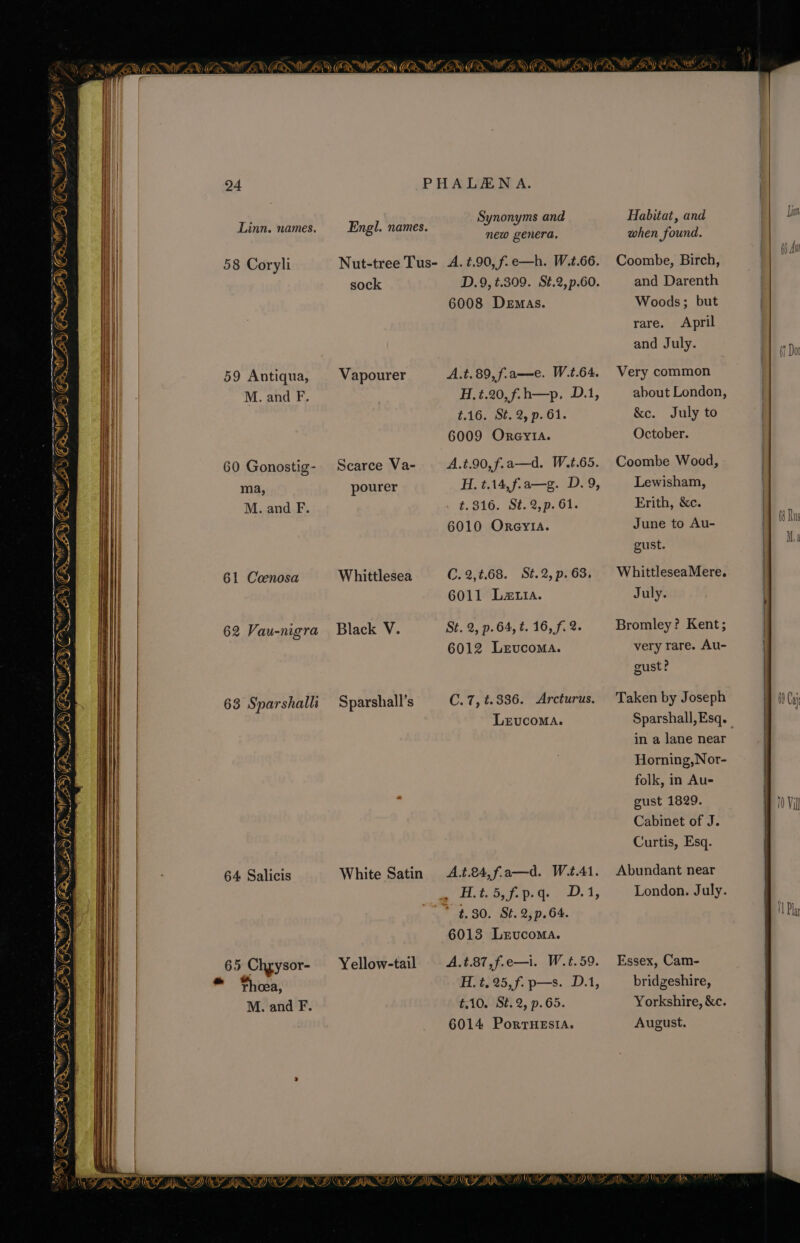 24 PHALÆNA.
Linn. names. Engl. names. Synonyms and new genera. Habitat, and when found.
58 Coryli Nut-tree Tus- A. t.90, f. e—h. W.t.66. Coombe, Birch,
sock D.9, t.309. St.2, p.60. and Darenth
6008 DEMAS. Woods; but
rare. April
and July.
59 Antiqua, Vapourer A.t.89, f.a—e. W.t.64. Very common
M. and F. H.t.20, f.h—p. D.1, about London,
t.16. St. 2, p. 61. &c. July to
6009 ORGYIA. October.
60 Gonostig- Scarce Va- A.t.90, f.a—d. W.t.65. Coombe Wood,
ma, pourer H. t.14, f.a—g. D. 9, Lewisham,
M. and F. t. 316. St. 2, p. 61. Erith, &c.
6010 ORGYIA. June to Au-
gust.
61 Cœnosa Whittlesea C. 2, t.68. St.2, p. 63. WhittleseaMere.
6011 LÆLIA. July.
62 Vau-nigra Black V. St. 2, p. 64, t. 16, f. 2. Bromley? Kent;
6012 LEUCOMA. very rare. Au-
gust?
63 Sparshalli Sparshall's C. 7, t.336. Arcturus. Taken by Joseph
LEUCOMA. Sparshall, Esq.
in a lane near
Horning, Nor-
folk, in Au-
gust 1829.
Cabinet of J.
Curtis, Esq.
64 Salicis White Satin A.t.84, f.a—d. W.t.41. Abundant near
H.t. 5, f.p.q. D. 1, London. July.
t. 30. St. 2, p. 64.
6013 LEUCOMA.
65 Chrysor- Yellow-tail A.t.87, f.e—i. W.t.59. Essex, Cam-
rhœa, H. t. 25, f. p—s. D.1, bridgeshire,
M. and F. t.10. St. 2, p. 65. Yorkshire, &c.
6014 PORTHESIA. August.